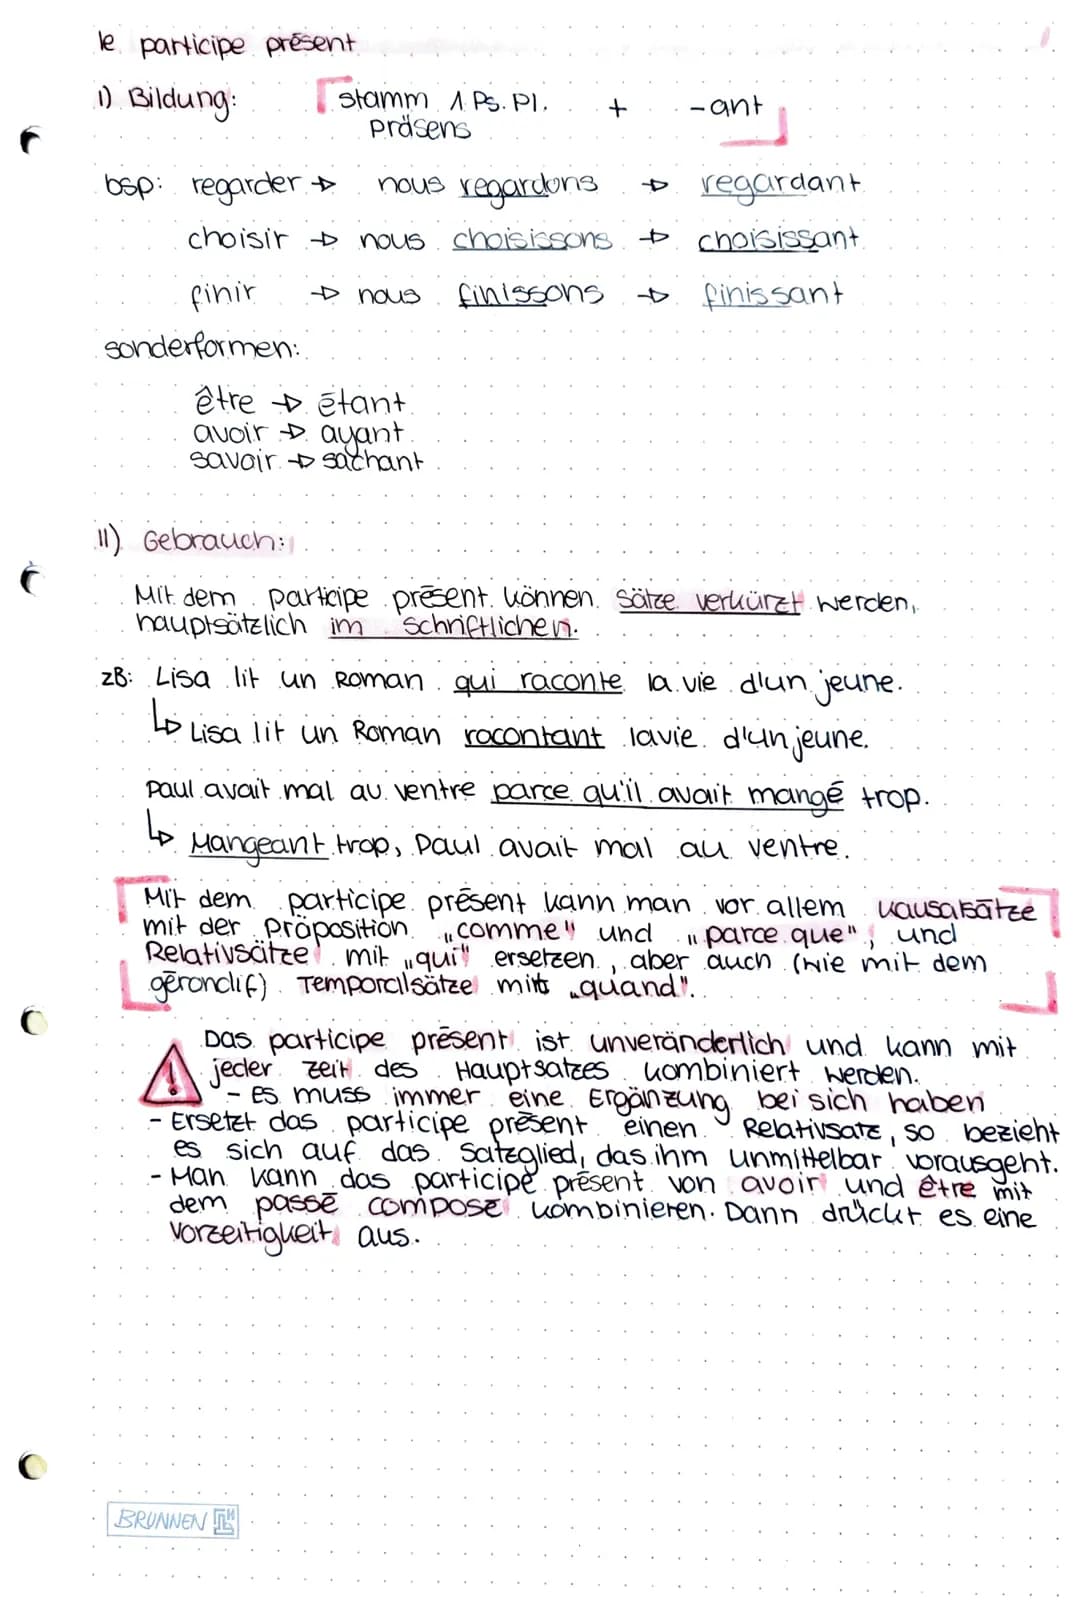 le participe présent
I) Bildung: Stamm 1. Ps. Pl. + -ant
Präsens
bsp: regarder → nous regardons → regardant
choisir → nous choisissons → choisissant
finir → nous finissons → finissant
sonderformen:
être → étant
avoir → ayant
savoir → sachant
II) Gebrauch:
Mit dem participe présent können Sätze verkürzt werden,
hauptsätzlich im schriftlichen.
zB: Lisa lit un Roman qui raconte la vie d'un jeune.
↳ Lisa lit un Roman racontant la vie d'un jeune.
Paul avait mal au ventre parce qu'il avait mangé trop.
↳ Mangeant trop, Paul avait mal au ventre.
Mit dem participe présent kann man vor allem Kausalsätze
mit der Präposition „comme" und „parce que", und
Relativsätze mit „qui" ersetzen, aber auch (wie mit dem
gérondif) Temporalsätze mit „quand".
Das participe présent ist unveränderlich und kann mit
! jeder zeit des Hauptsatzes kombiniert werden.
- Es muss immer eine Ergänzung bei sich haben
- Ersetzt das participe présent einen Relativsatz, so bezieht
es sich auf das Satzglied, das ihm unmittelbar vorausgeht.
- Man kann das participe présent von avoir und être mit
dem passé composé kombinieren. Dann drückt es eine
Vorzeitigkeit aus.
BRUNNEN